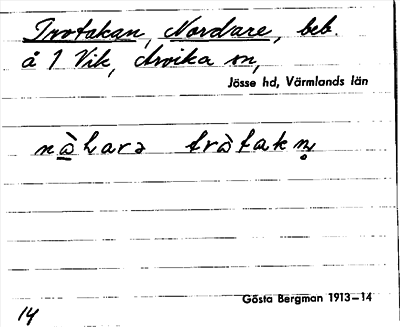 Trotakan, Nordare, beb.
å 1 Vik, Arvika sn,
Jösse hd, Värmlands län
nòLarə tròtakn̥
Gösta Bergman 1913–14
14